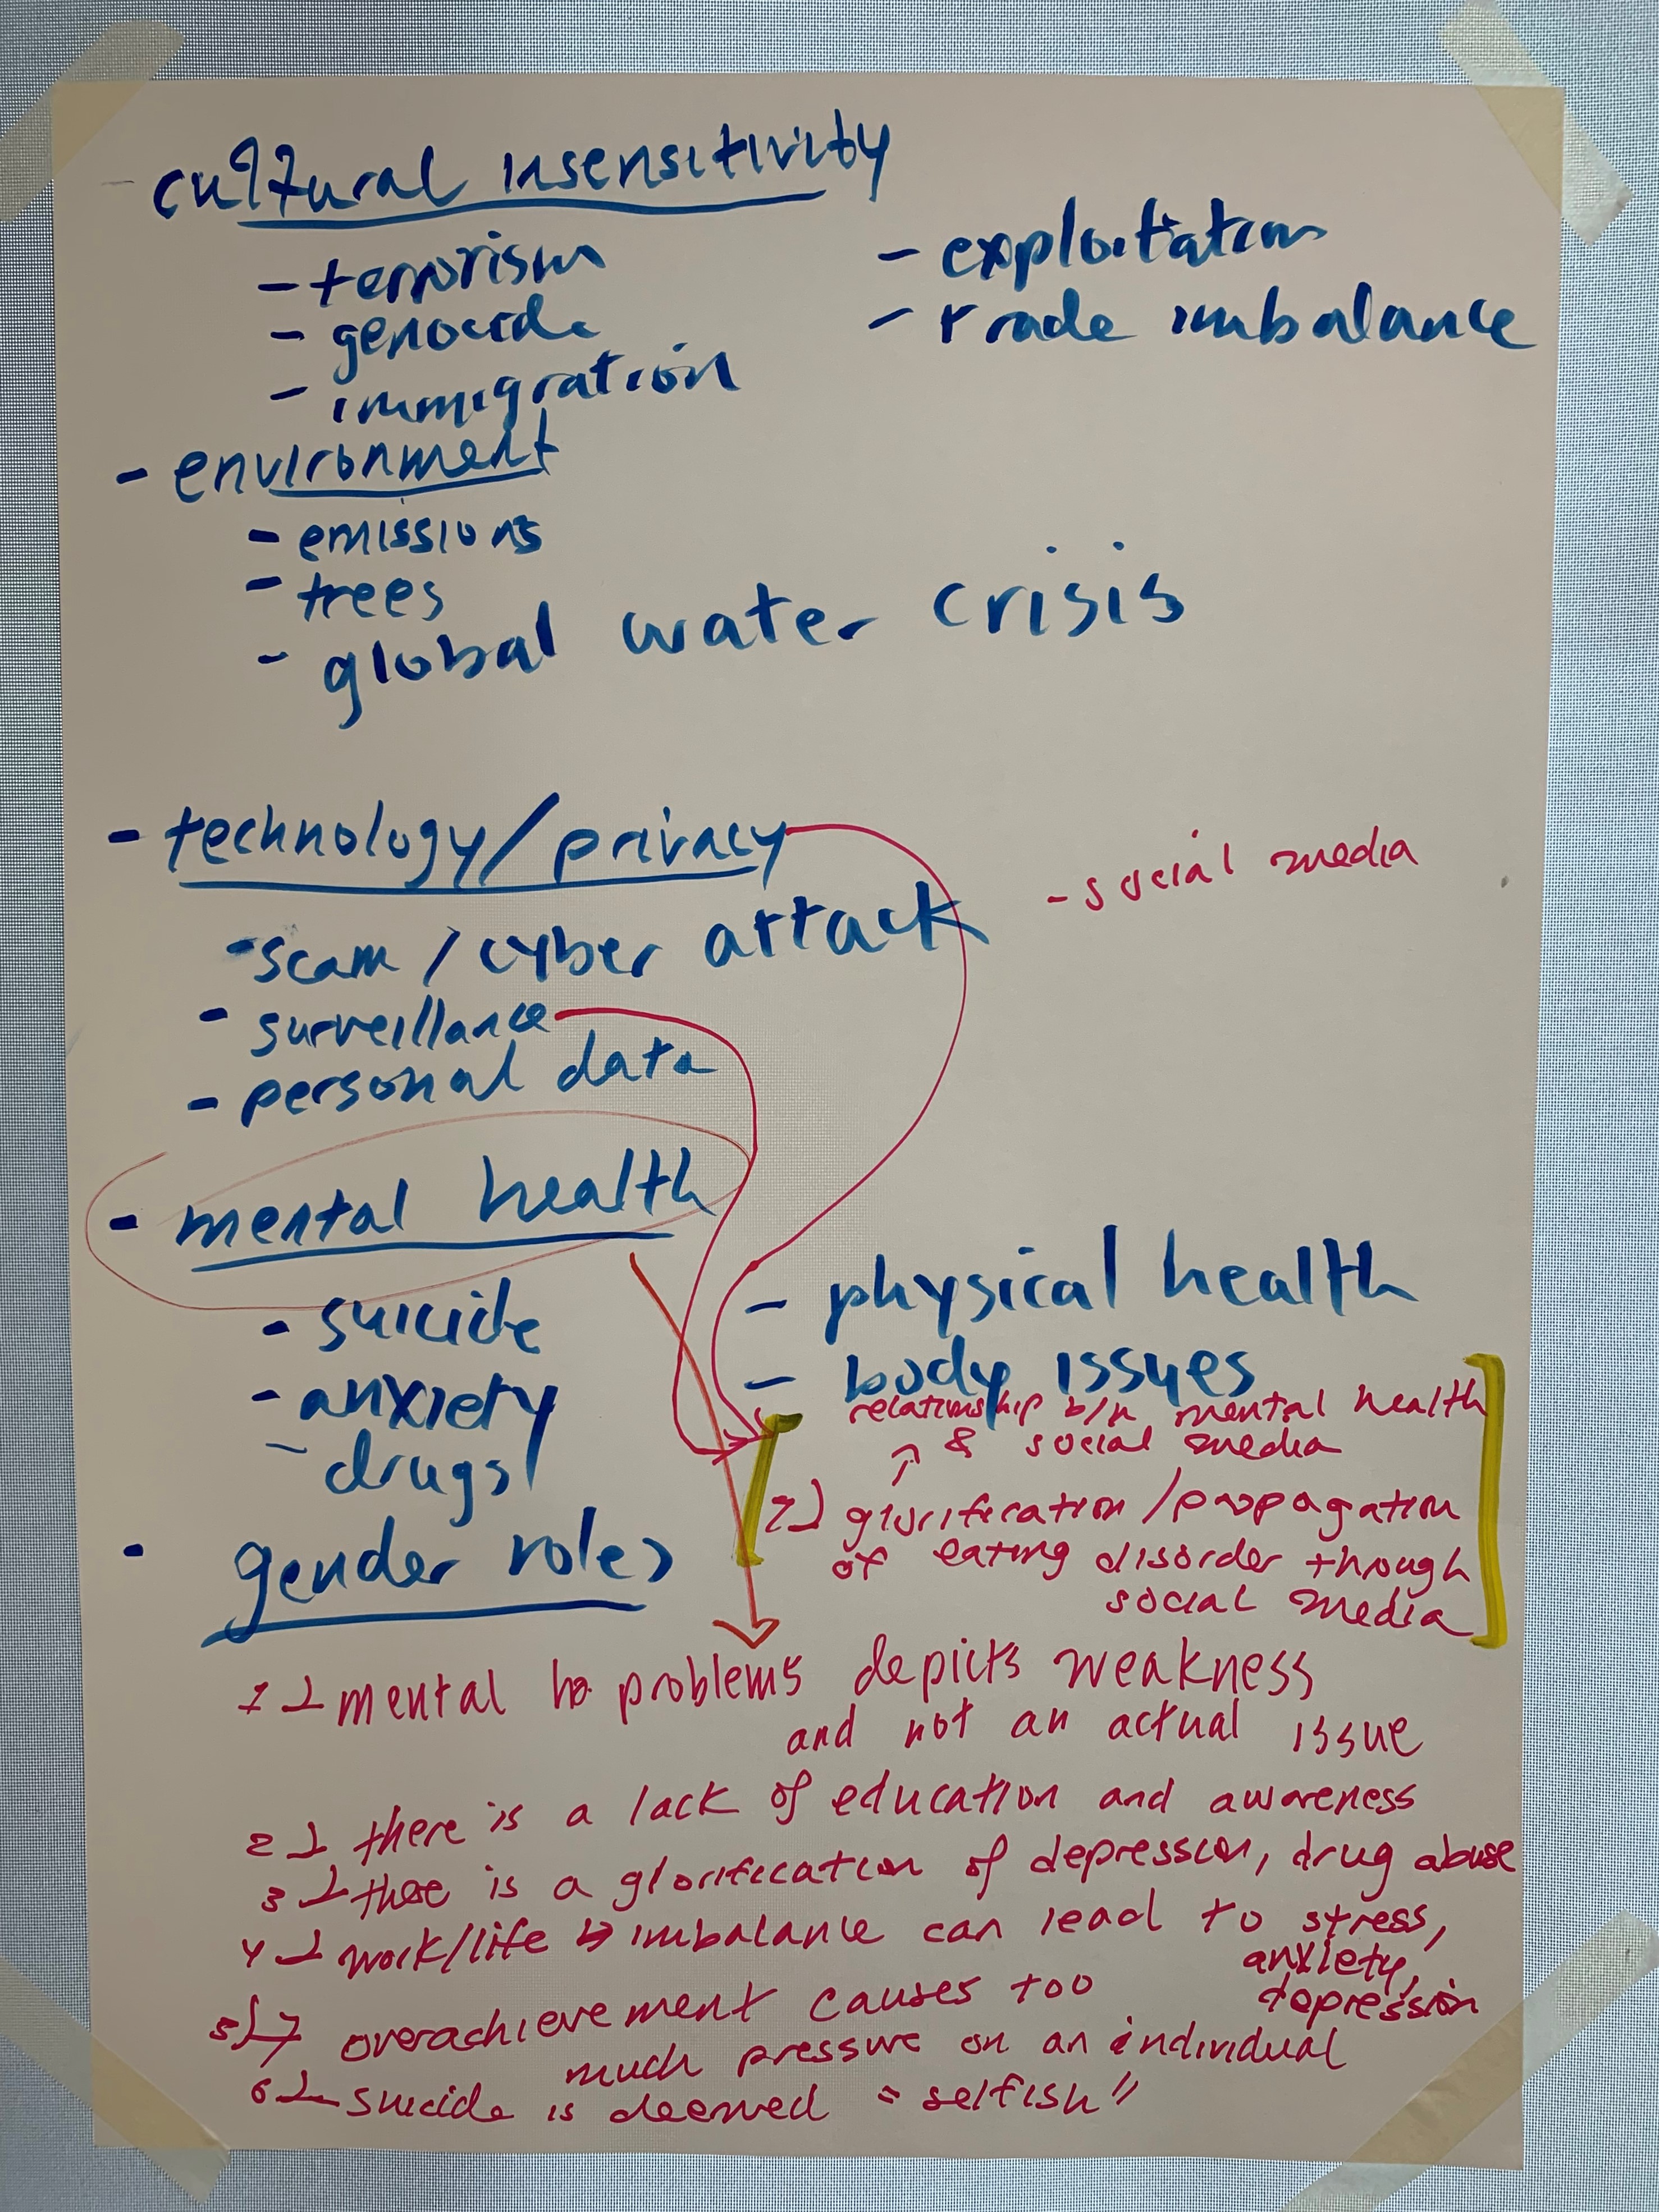 - cultural insensitivity
- terrorism
- genocide
- immigration
- exploitation
- trade imbalance
- environment
- emissions
- trees
- global water crisis
- technology/privacy
- social media
- scam / cyber attack
- surveillance
- personal data
- mental health
- suicide
- anxiety
- drugs
- physical health
- body issues
relationship b/n mental health
& social media
7) glorification/propagation
of eating disorder though
social media
• gender roles
1) mental problems depicts weakness
and not an actual issue
2) there is a lack of education and awareness
3) there is a glorification of depression, drug abuse
4) work/life imbalance can lead to stress,
anxiety,
depression
5) overachievement causes too
much pressure on an individual
6) suicide is deemed "selfish"